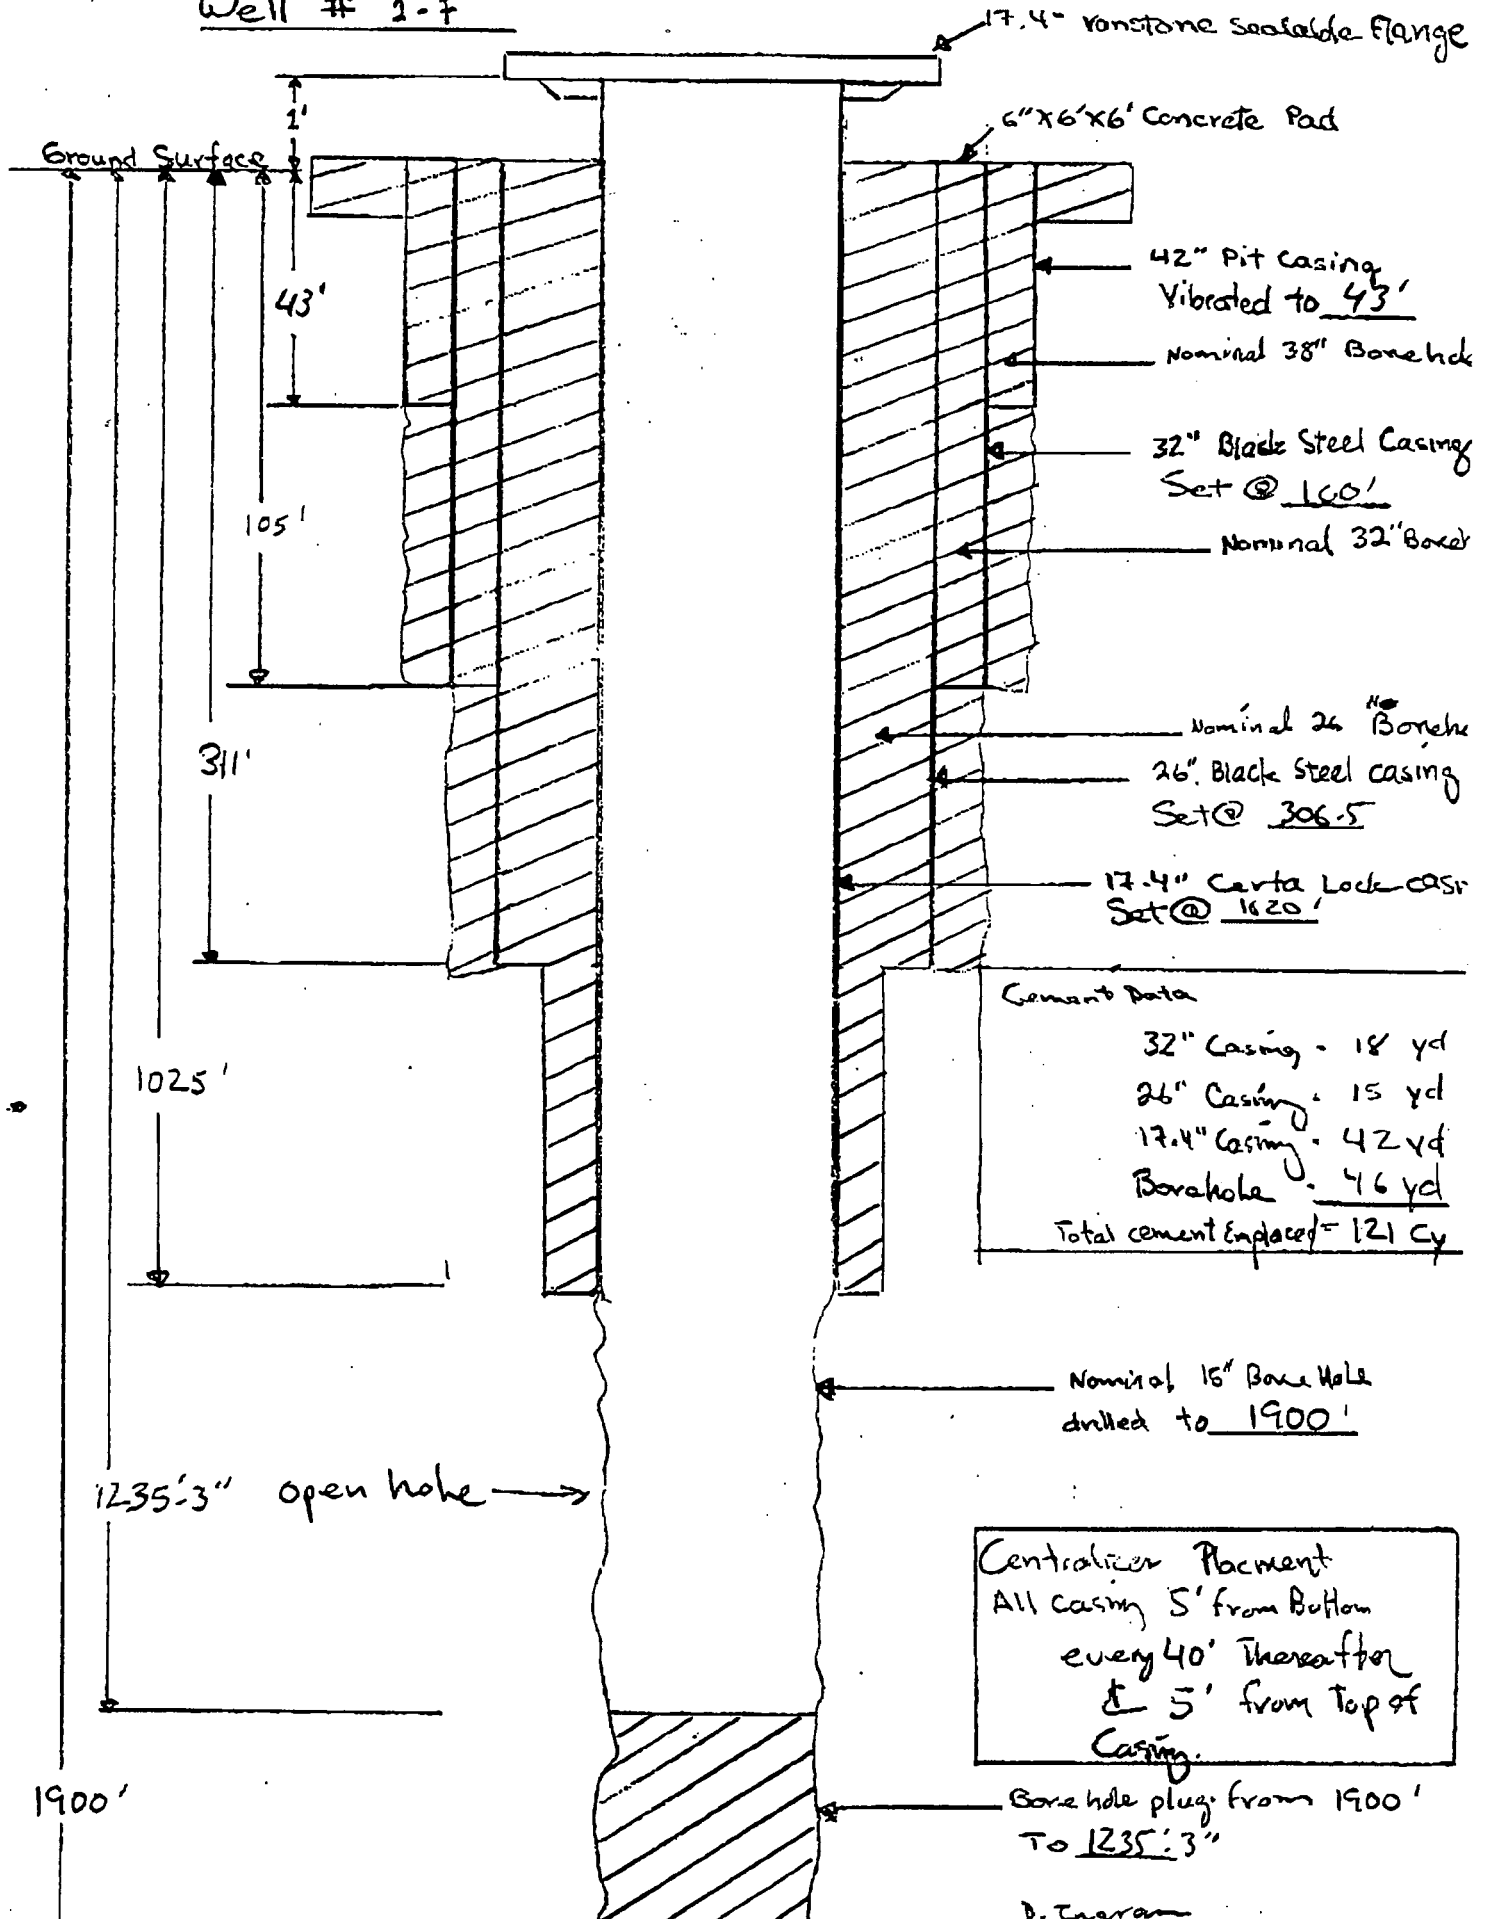 Well # 1-7
17.4" vanstone sealable Flange
1'
6"x6'x6' Concrete Pad
Ground Surface
42" Pit Casing
Vibrated to 43'
43'
Nominal 38" Borehol
32" Black Steel Casing
Set @ 100'
105'
Nominal 32" Boreh
Nominal 26" Boreho
311'
26" Black Steel casing
Set @ 306.5
17.4" Certa Lock casi
Set @ 1020'
Cement Data
32" Casing - 18 yd
1025'
26" Casing - 15 yd
17.4" Casing - 42 yd
Borehole - 46 yd
Total cement Emplaced = 121 Cy
Nominal 15" Bore Hole
drilled to 1900'
1235'-3" open hole
Centralizer Placment
All casing 5' from Bottom
every 40' Thereafter
& 5' from Top of
Casing.
1900'
Bore hole plug from 1900'
To 1235'-3"
D. Ingram